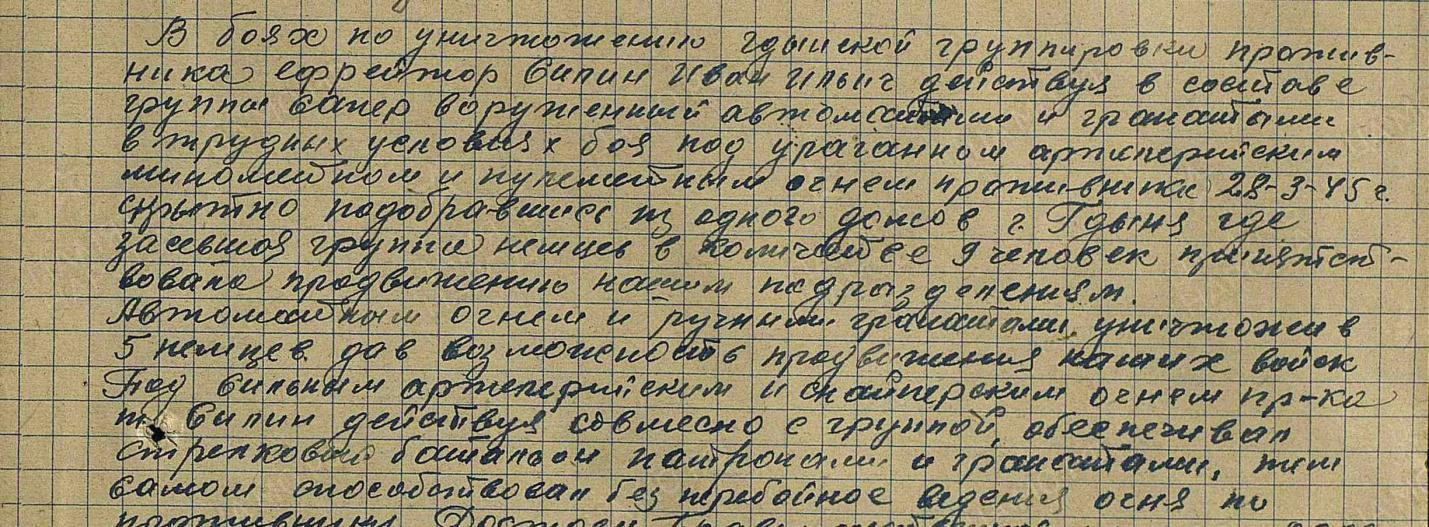 В боях по уничтожению гдынской группировки против-
ника ефрейтор Силин Иван Ильич действуя в составе
группы сапер воруженный автоматами и гранатыми
в трудных условиях боя под ураганном артелерийским
минометном и пулеметным огнем противника 28-3-45 г.
скрытно подобравшись из одного домов г. Гдыня где
засевшая группа немцев в количестве 9 человек припятст-
вовала продвижению нашим подразделениям.
Автоматным огнем и ручными гранатами уничтожив
5 немцев дав возможность продвижения наших войск
Под сильным артелерийским и снайперским огнем пр-ка
т. Силин действуя совмесно с группой, обеспечивал
стрелковый батальон патронами и гранатами, тем
самом способствовал без перебойное ведения огня по
противнику Достоен